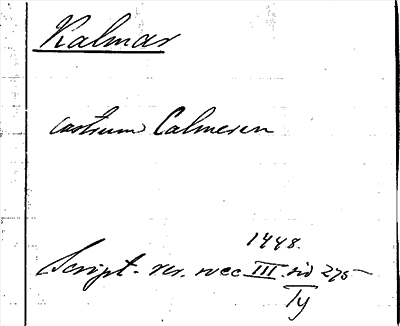 Kalmar
castrum Calmeren
1448.
Script. rer. svec III. sid 275
Ty